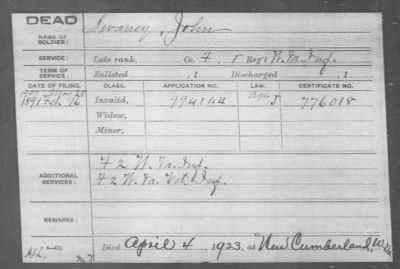 DEAD
NAME OF SOLDIER: Swaney, John
SERVICE: Late rank, Co. F, 1" Reg't W. Va. Inf.
TERM OF SERVICE: Enlisted , 1 Discharged , 1
DATE OF FILING. CLASS. APPLICATION NO. LAW. CERTIFICATE NO.
1891 Feb. 16 Invalid, 994144 J 776018
Widow,
Minor,
ADDITIONAL SERVICES: F 2 W. Va. Inf.
F 2 W. Va. Vet. Inf.
REMARKS:
Died April 4, 1923, at New Cumberland, W. Va.